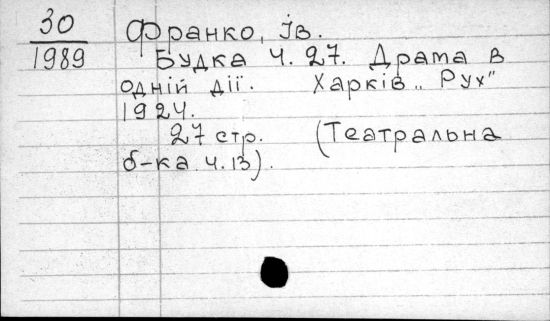 30
1989
Франко, Ів.
Будка ч. 27. Драма в
одній дії. Харків „Рух"
1924.
27 стр. (Театральна
б-ка ч. 13).